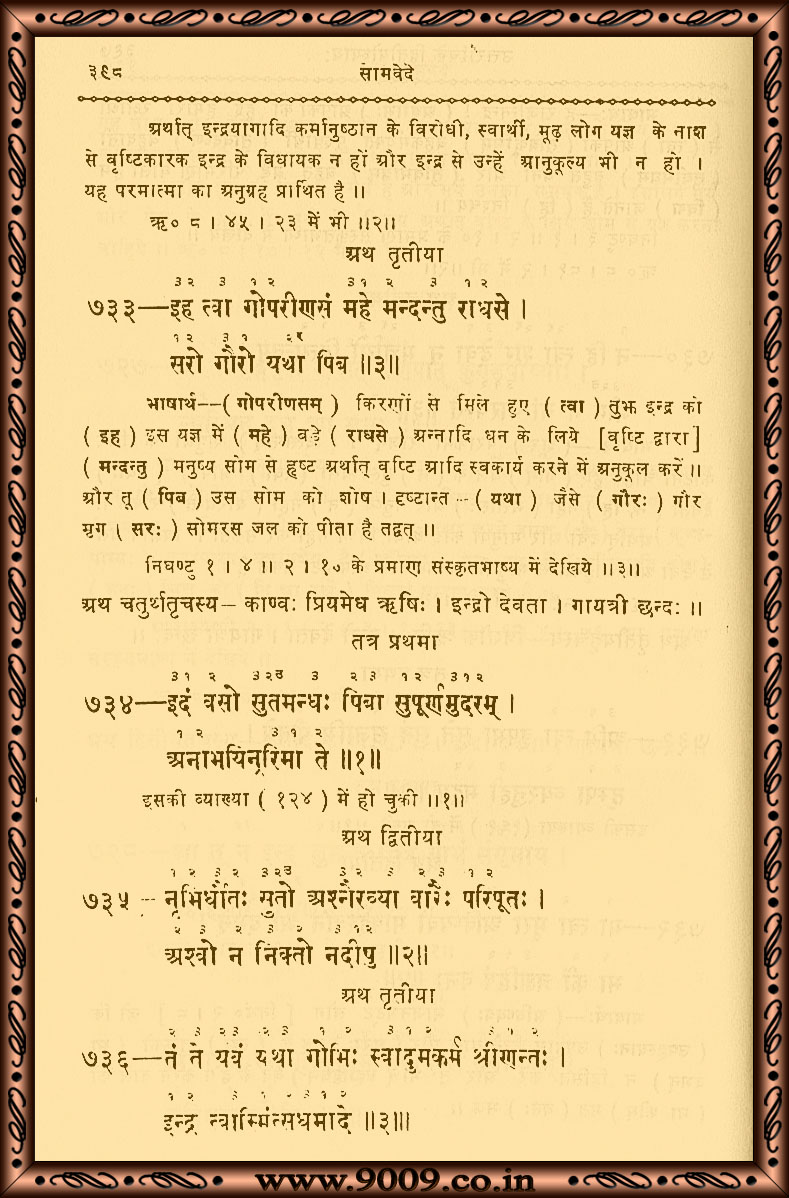 ३९८ सामवेदे
अर्थात् इन्द्रयागादि कर्मानुष्ठान के विरोधी, स्वार्थी, मूढ़ लोग यज्ञ के नाश
से वृष्टिकारक इन्द्र के विधायक न हों और इन्द्र से उन्हें आनुकूल्य भी न हो ।
यह परमात्मा का अनुग्रह प्रार्थित है ।।
ऋ० ८ । ४५ । २३ में भी ।।२।।
अथ तृतीया
३२ ३ १२ ३१ २ ३ १२
७३३—इह त्वा गोपरीणसं महे मन्दन्तु राधसे ।
१२ ३१ २र
सरो गौरो यथा पिब ॥३॥
भाषार्थ--( गोपरीणसम् ) किरणों से मिले हुए ( त्वा ) तुझ इन्द्र को
( इह ) इस यज्ञ में ( महे ) बड़े ( राधसे ) अन्नादि धन के लिये [वृष्टि द्वारा]
( मन्दन्तु ) मनुष्य सोम से हृष्ट अर्थात् वृष्टि आदि स्वकार्य करने में अनुकूल करें ।।
और तू ( पिब ) उस सोम को शोष । दृष्टान्त -- ( यथा ) जैसे ( गौरः ) गौर
मृग ( सरः ) सोमरस जल को पीता है तद्वत् ।।
निघण्टु १ । ४ ।। २ । १० के प्रमाण संस्कृतभाष्य में देखिये ।।३।।
अथ चतुर्थतृचस्य– काण्वः प्रियमेध ऋषिः । इन्द्रो देवता । गायत्री छन्दः ।।
तत्र प्रथमा
३१ २ ३२उ ३ २३ १२ ३१२
७३४—इदं वसो सुतमन्धः पिबा सुपूर्णमुदरम् ।
१२ ३१२
अनाभयिन्ररिमा ते ॥१॥
इसकी व्याख्या ( १२४ ) में हो चुकी ।।१।।
अथ द्वितीया
१२ ३२ ३२उ ३२ ३ २३ १२
७३५ -- नृभिर्धौतः सुतो अश्नैरव्या वारैः परिपूतः ।
२ ३ २ ३ २ ३१२
अश्वो न निक्तो नदीषु ॥२॥
अथ तृतीया
२ ३ २३ २३ १ २ ३१२ ३१२
७३६—तं ते यवं यथा गोभिः स्वादुमकर्म श्रीणन्तः ।
१२ ३ १ २३१२
इन्द्र त्वास्मिंत्सधमादे ॥३॥
www.9009.co.in